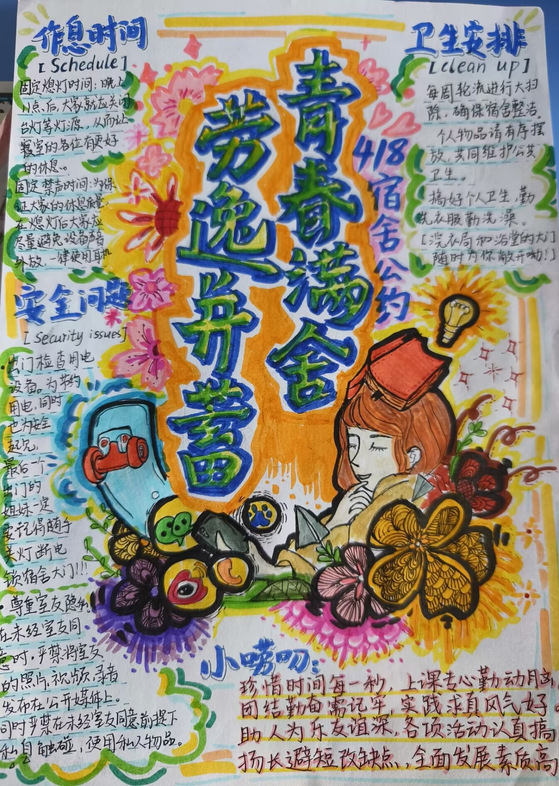 作息时间
[Schedule]
固定熄灯时间：晚上
11点后，大家就应关闭
台灯等灯源，从而让
寝室的各位有更好
的休息。
固定禁声时间：为保
证大家的休息质量
在熄灯后大家应
尽量避免设备声音
外放，一律使用耳机
安全问题
[Security issues]
出门检查用电
设备，为节约
用电，同时
也为安全
起见，
最后一个
出门的
姐妹一定
要记得随手
关灯断电
锁宿舍大门!!!
尊重室友隐私
在未经室友同
意时，严禁将室友
的照片、视频、录音
发布在公开媒体上。
同时严禁在未经室友同意前提下
私自触碰，使用私人物品。
青春满舍
劳逸并蓄
418宿舍公约
卫生安排
[clean up]
每周轮流进行大扫
除，确保宿舍整洁。
个人物品请有序摆
放，共同维护公共
卫生。
搞好个人卫生，勤
洗衣服勤洗澡。
[洗衣房和浴室的大门
随时为你敞开呦!]
小唠叨：
珍惜时间每一秒，上课专心勤动用高
团结勤勉需记牢，实践求真风气好。
助人为乐友谊深，各项活动认真搞
扬长避短改缺点，全面发展素质高